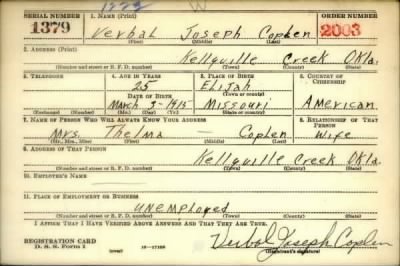 1778 W
SERIAL NUMBER 1. NAME (Print) ORDER NUMBER
1379 Verbal Joseph Coplen 2003
(First) (Middle) (Last)
2. ADDRESS (Print)
Kellyville Creek Okla.
(Number and street or R. F. D. number) (Town) (County) (State)
3. TELEPHONE 4. AGE IN YEARS 5. PLACE OF BIRTH 6. COUNTRY OF CITIZENSHIP
25 Elijah
DATE OF BIRTH (Town or county)
March 3-1915 Missouri American
(Exchange) (No.) (Mo.) (Day) (Yr.) (State or country)
7. NAME OF PERSON WHO WILL ALWAYS KNOW YOUR ADDRESS 8. RELATIONSHIP OF THAT PERSON
Mrs. Thelma — Coplen Wife
(Mr., Mrs., Miss) (First) (Middle) (Last)
9. ADDRESS OF THAT PERSON
Kellyville Creek Okla.
(Number and street or R. F. D. number) (Town) (County) (State)
10. EMPLOYER'S NAME
11. PLACE OF EMPLOYMENT OR BUSINESS
unemployed
(Number and street or R. F. D. number) (Town) (County) (State)
I AFFIRM THAT I HAVE VERIFIED ABOVE ANSWERS AND THAT THEY ARE TRUE.
REGISTRATION CARD
D. S. S. Form 1 (over) 16-17105 Verbal Joseph Coplen
(Registrant's signature)